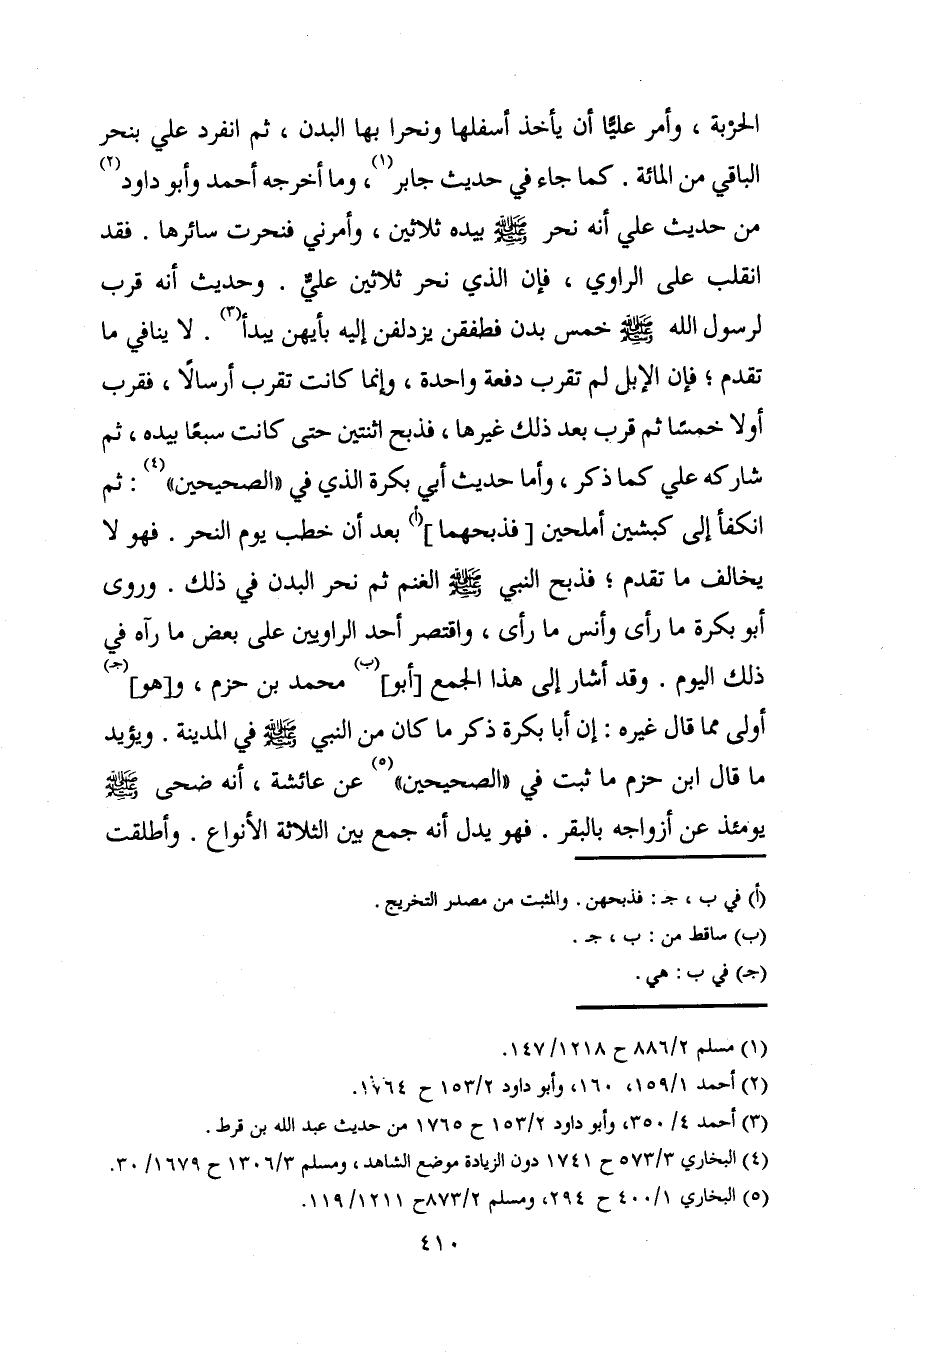 الحرْبة ، وأمر عليًّا أن يأخذ أسفلها ونحرا بها البدن ، ثم انفرد علي بنحر
الباقي من المائة . كما جاء في حديث جابر(١)، وما أخرجه أحمد وأبو داود(٢)
من حديث علي أنه نحر ﷺ بيده ثلاثين ، وأمرني فنحرت سائرها . فقد
انقلب على الراوي ، فإن الذي نحر ثلاثين عليٌّ . وحديث أنه قرب
لرسول الله ﷺ خمس بدن فطفقن يزدلفن إليه بأيهن يبدأ(٣) . لا ينافي ما
تقدم ؛ فإن الإبل لم تقرب دفعة واحدة ، وإنما كانت تقرب أرسالًا ، فقرب
أولا خمسًا ثم قرب بعد ذلك غيرها ، فذبح اثنتين حتى كانت سبعًا بيده ، ثم
شاركه علي كما ذكر ، وأما حديث أبي بكرة الذي في «الصحيحين»(٤) : ثم
انكفأ إلى كبشين أملحين [ فذبحهما ](أ) بعد أن خطب يوم النحر . فهو لا
يخالف ما تقدم ؛ فذبح النبي ﷺ الغنم ثم نحر البدن في ذلك . وروى
أبو بكرة ما رأى وأنس ما رأى ، واقتصر أحد الراويين على بعض ما رآه في
ذلك اليوم . وقد أشار إلى هذا الجمع [أبو](ب) محمد بن حزم ، و[هو](جـ)
أولى مما قال غيره : إن أبا بكرة ذكر ما كان من النبي ﷺ في المدينة . ويؤيد
ما قال ابن حزم ما ثبت في «الصحيحين»(٥) عن عائشة ، أنه ضحى ﷺ
يومئذ عن أزواجه بالبقر . فهو يدل أنه جمع بين الثلاثة الأنواع . وأطلقت
(أ) في ب ، جـ : فذبحهن . والمثبت من مصدر التخريج .
(ب) ساقط من : ب ، جـ .
(جـ) في ب : هي .
(١) مسلم ٨٨٦/٢ ح ١٤٧/١٢١٨.
(٢) أحمد ١٥٩/١، ١٦٠، وأبو داود ١٥٣/٢ ح ١٧٦٤.
(٣) أحمد ٤/ ٣٥٠، وأبو داود ١٥٣/٢ ح ١٧٦٥ من حديث عبد الله بن قرط .
(٤) البخاري ٥٧٣/٣ ح ١٧٤١ دون الزيادة موضع الشاهد ، ومسلم ١٣٠٦/٣ ح ١٦٧٩/ ٣٠.
(٥) البخاري ٤٠٠/١ ح ٢٩٤، ومسلم ٨٧٣/٢ح ١١٩/١٢١١.
٤١٠